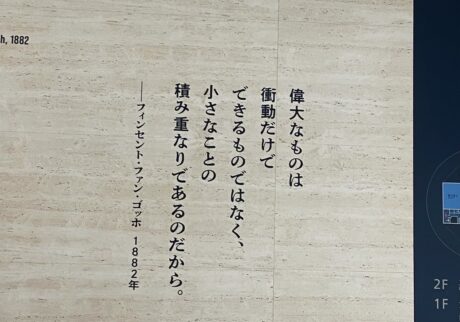 h, 1882
偉大なものは
衝動だけで
できるものではなく、
小さなことの
積み重なりであるのだから。
——フィンセント・ファン・ゴッホ 1882年
2F
1F